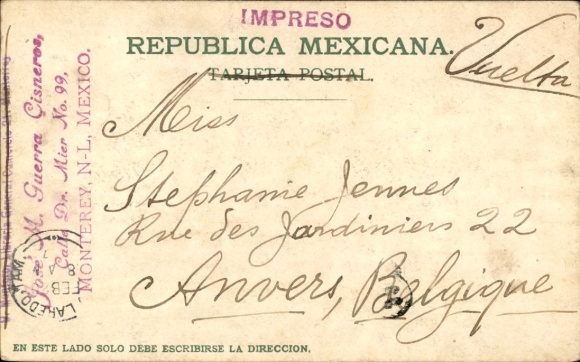 IMPRESO
REPUBLICA MEXICANA.
TARJETA POSTAL.
Vuelta
Miss
Stephanie Jennes
Rue des Jardiniers 22
Anvers, Belgique
José M. Guerra Cisneros,
Calle Dr. Mier No. 99,
MONTEREY, N-L, MEXICO.
LAREDO, TAM
FEB
8 A
EN ESTE LADO SOLO DEBE ESCRIBIRSE LA DIRECCION.